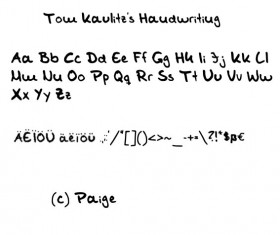 Tom Kaulitz's Handwriting
Aa Bb Cc Dd Ee Ff Gg Hh Ii Jj Kk Ll
Mm Nn Oo Pp Qq Rr Ss Tt Uu Vv Ww
Xx Yy Zz
ÄËÏÖÜ äëïöü .,:;'/"[]()<>~_-+=\?!*$ß€
(c) Paige